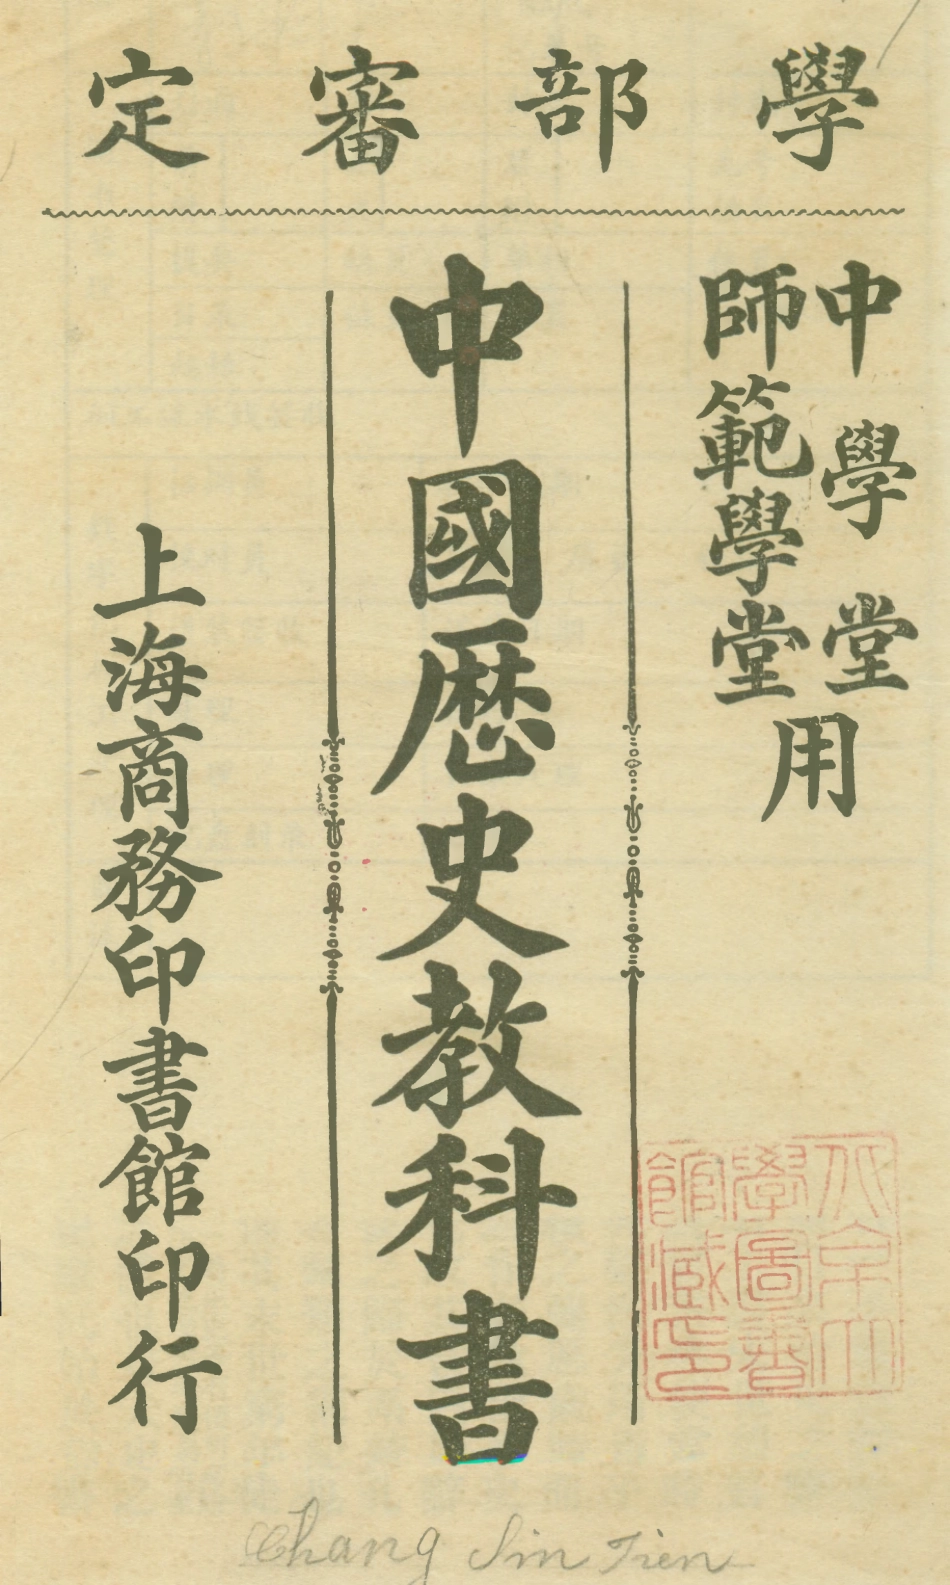 學部審定
中學堂
師範學堂
用
中國歷史教科書
上海商務印書館印行
北京大
學圖書
館藏印
Chang Sin Tien